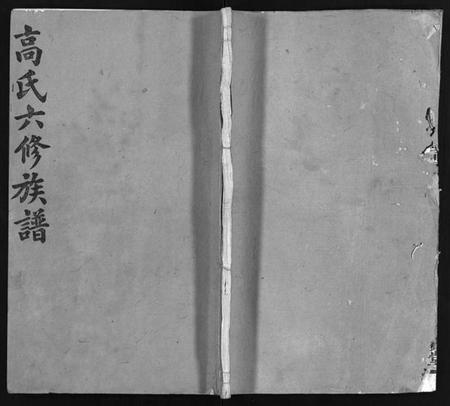 高氏六修族譜